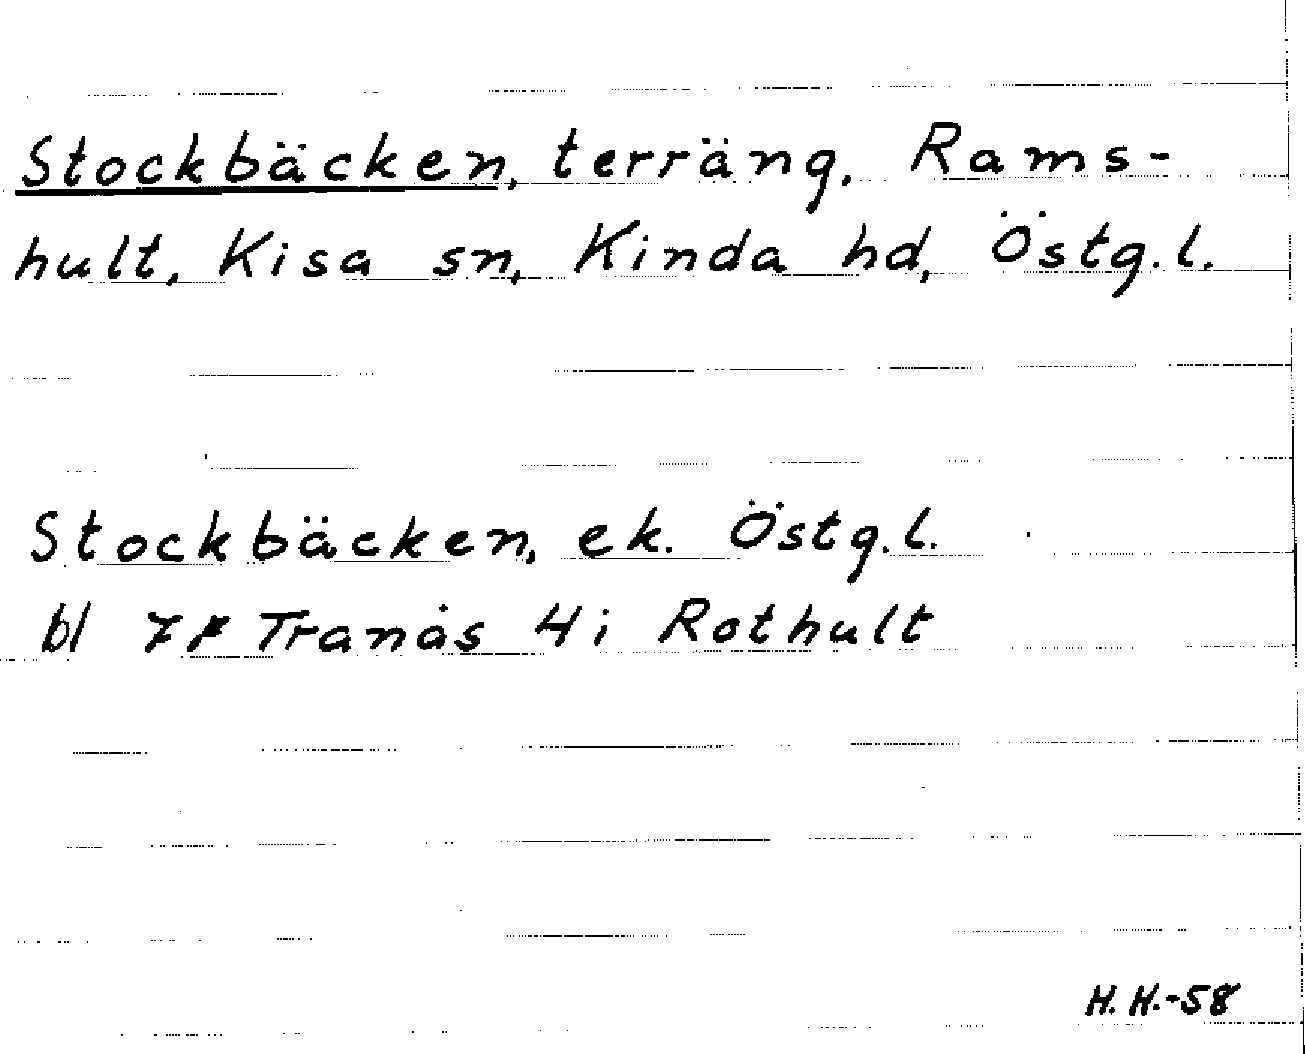 Stockbäcken, terräng, Rams-
hult, Kisa sn, Kinda hd, Östg.l.
Stockbäcken, ek. Östg.l.
bl 7F Tranås 4i Rothult
H.H.-58